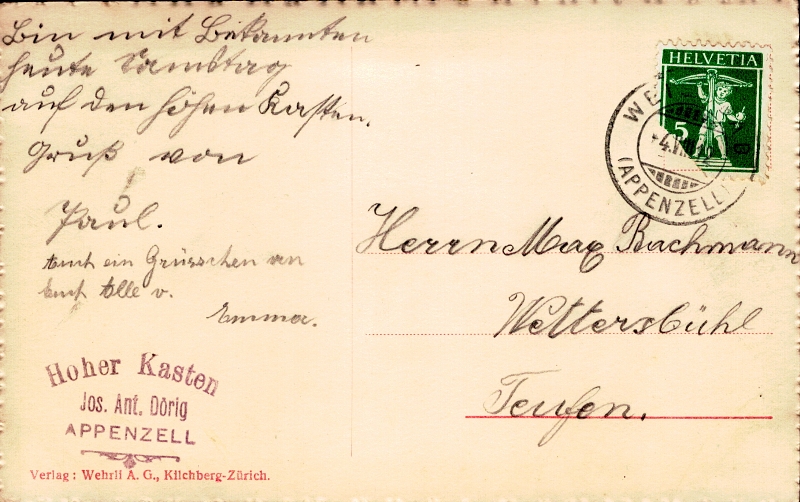 Bin mit Bekannten
heute Samstag
auf den hohen Kasten.
Gruß von
Paul.
Auch ein Grüsschen an
Euch Alle v.
Emma.
Hoher Kasten
Jos. Ant. Dörig
APPENZELL
Verlag: Wehrli A. G., Kilchberg-Zürich.
HELVETIA
5
(APPENZELL)
Herrn Max Bachmann
Wettersbühl
Teufen.